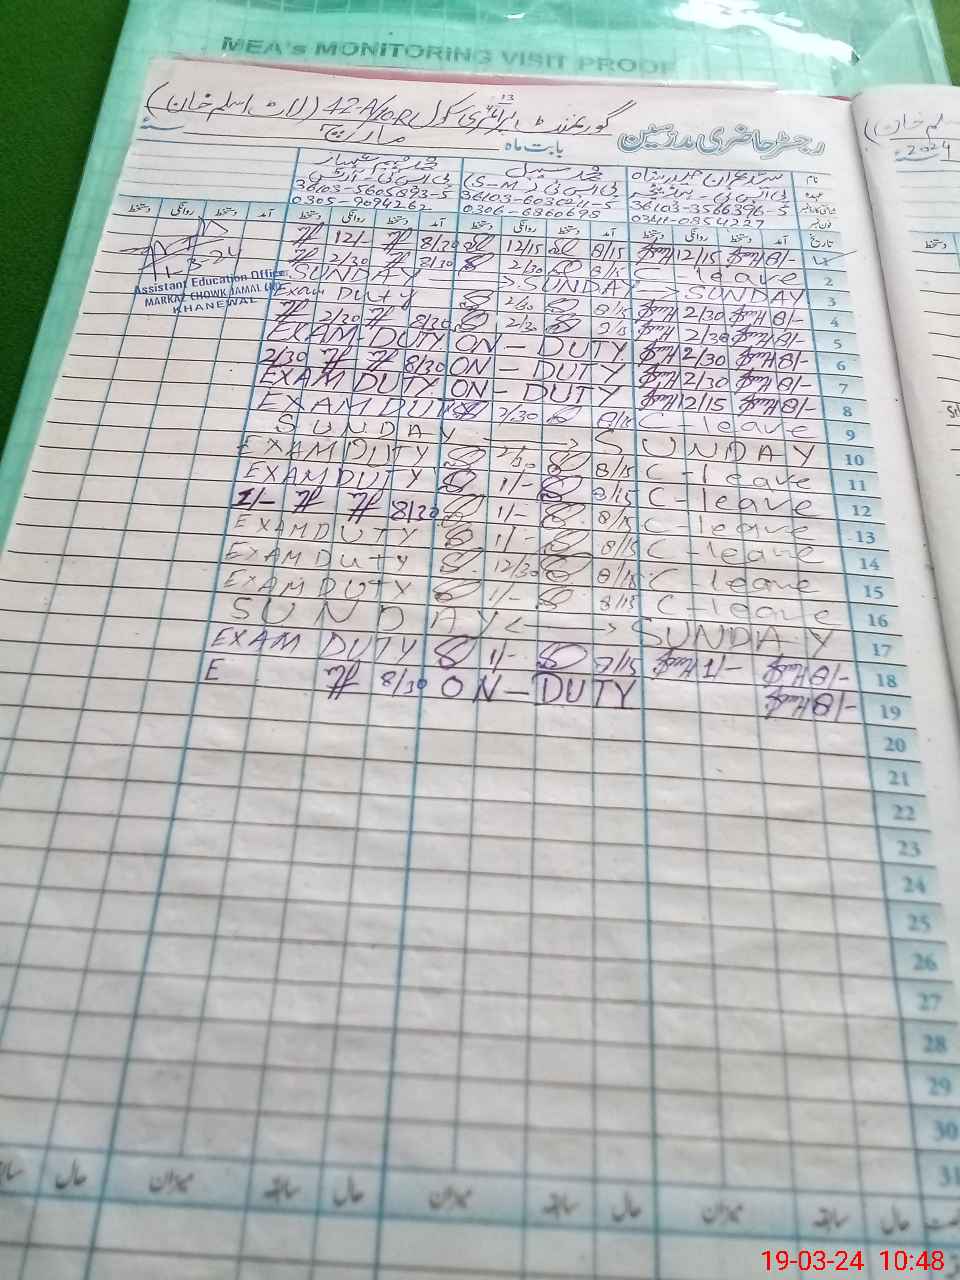 MEA's MONITORING VISIT PROOF
گورنمنٹ پرائمری سکول 42-A/10RL (لاٹ اسلم خان)
رجسٹر حاضری مدرسین بابت ماہ مارچ سنہ
2024
نام
36103-3566396-5 36103-6030211-5 36103-5605893-5
0341-0854227 0306-6860698 0305-9094262
تاریخ آمد دستخط روانگی دستخط آمد دستخط روانگی دستخط آمد دستخط روانگی دستخط آمد دستخط روانگی دستخط
12/- 8/30 12/15 8/15 12/15 8/-
2/30 8/30 2/30 8/15 C - leave 2
SUNDAY → SUNDAY → SUNDAY 3
Exam DUTY 2/30 2/30 8/- 4
2/30 8/30 2/30 2/30 8/- 5
EXAM-DUTY ON - DUTY 2/30 8/- 6
2/30 8/30 ON - DUTY 2/30 8/- 7
EXAM DUTY ON - DUTY 12/15 8/- 8
EXAM DUTY 2/30 8/15 C - leave 9
SUNDAY → SUNDAY 10
EXAM DUTY 2/30 8/15 C - leave 11
EXAM DUTY 1/- 8/15 C - leave 12
1/- 8/30 1/- 8/15 C - leave 13
EXAM DUTY 1/- 8/15 C - leave 14
EXAM DUTY 12/30 8/15 C - leave 15
EXAM DUTY 1/- 8/15 C - leave 16
SUNDAY <—> SUNDAY 17
EXAM DUTY 1/- 7/15 1/- 8/- 18
E 8/30 ON - DUTY 8/- 19
20
21
22
23
24
25
26
27
28
29
30
31
1-3-24
Assistant Education Officer
MARKAZ CHOWK JAMAL (M)
KHANEWAL
حال سابقہ میزان حال سابقہ میزان حال
19-03-24 10:48